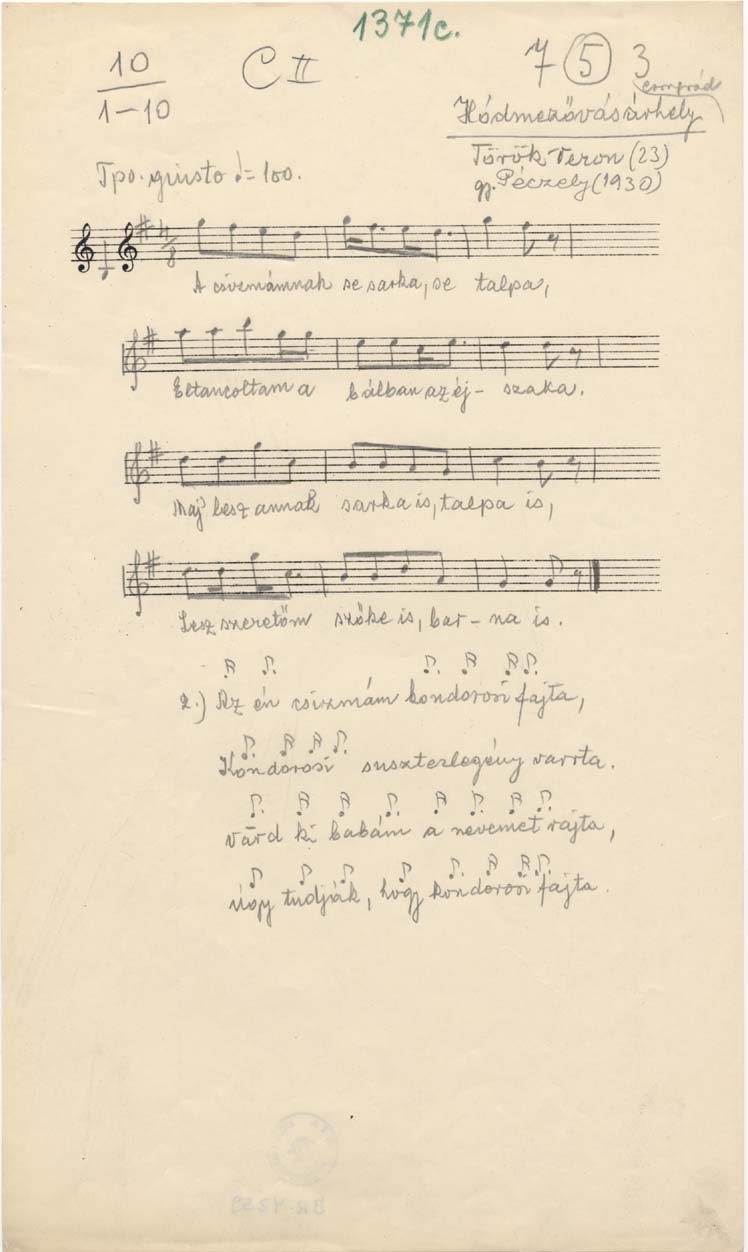 1371c.
10 C II 7 5 3
1–10
Csongrád
Hódmezővásárhely
Török Teron (23)
gy. Péczely (1930)
Tpo. giusto ♩= 100.
4/8
A csizmámnak se sarka, se talpa,
Eltancoltam a bálban az éj- szaka.
Maj' lesz annak sarka is, talpa is,
Lesz szeretőm szőke is, bar- na is.
2.) Az én csizmám kondorosi fajta,
Kondorosi suszterlegény varrta.
Várd ki babám a nevemet rajta,
Úgy tudják, hogy kondorosi fajta.